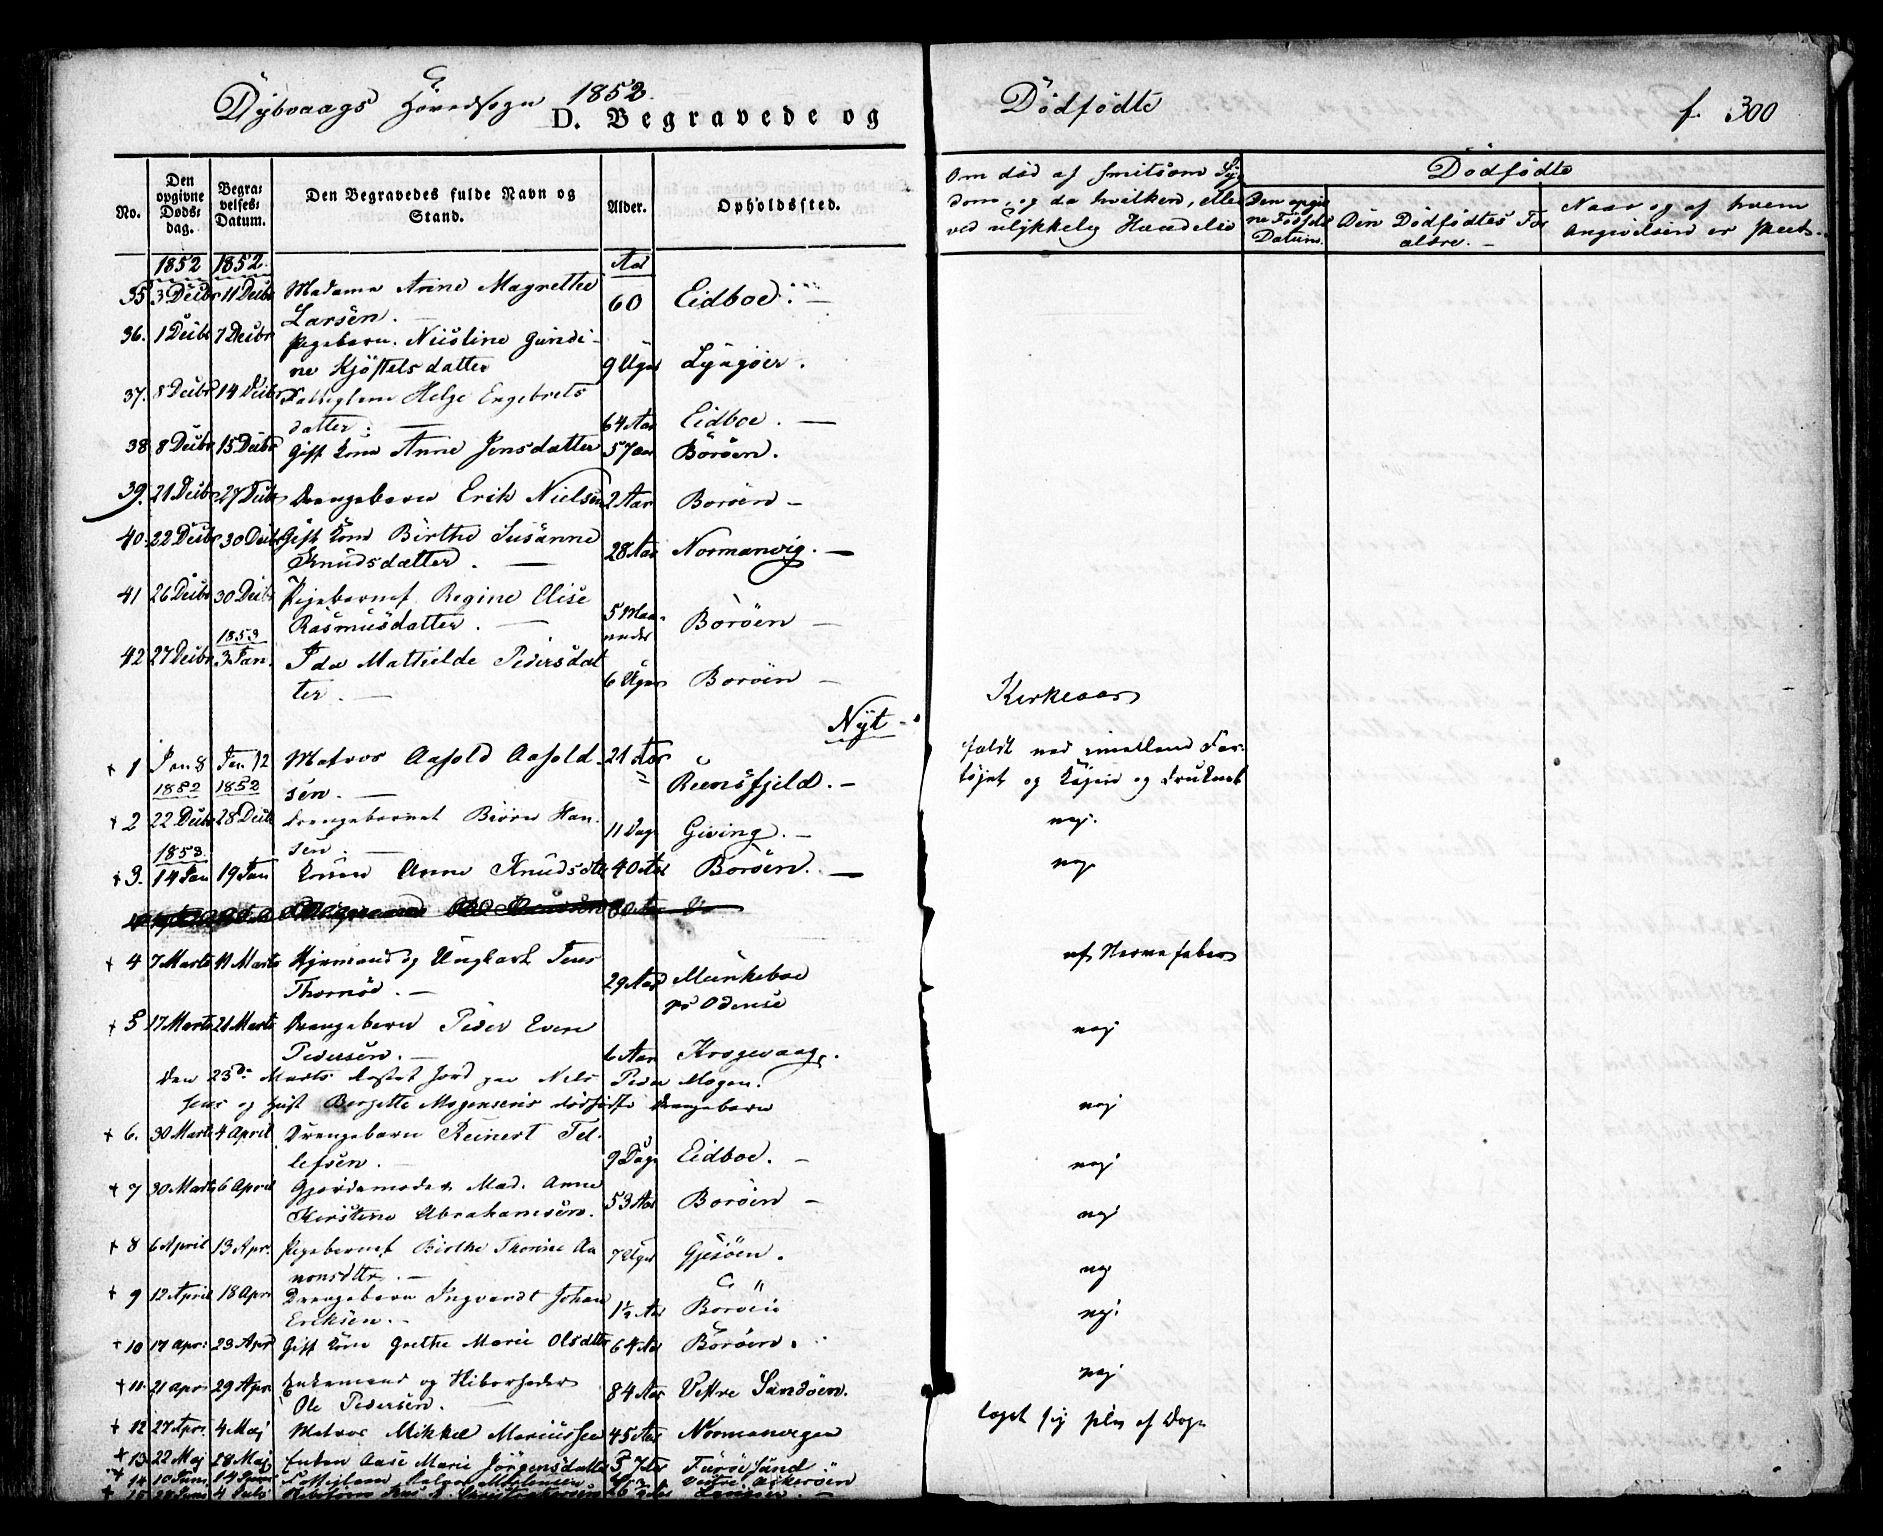 Dybvaags Hovedsogn 1852.
D. Begravede og
Dødfødte
f. 300
No.
Den opgivne Døds-dag.
Begra-velses-Datum.
Den Begravedes fulde Navn og Stand.
Alder.
Opholdssted.
Om død af smitsom Syg
dom, og da hvilken, eller
ved ulykkelig Hændelse
Dødfødte
Den opgiv
ne Fødsels
Datum.
Den Dødfødtes For
ældre. -
Naar og af hvem
Angivelsen er skeet.
1852 1852. Aar
35 3 Decbr 11 Decbr Madame Anne Magrethe
Larsen. - 60 Eidboe. -
36. 1 Decbr 7 Decbr Pigebarn. Nicoline Gundi-
ne Kjøstelsdatter 9 Uger Lyngøer.
37. 8 Decbr 14 Decbr Helge Engebrets
datter. - 64 Aar Eidboe. -
38 8 Decbr 15 Decbr Gift Kone Anne Jensdatter 57 Aar Borøen.
39. 21 Decbr 27 Decbr Drengebarn Erik Nielsen 2 Aar Borøen -
40. 22 Decbr 30 Decbr Gift Kone Birthe Susanne
Knudsdatter. - 28 Aar Normanvig. -
41 26 Decbr 30 Decbr Pigebarnet Regine Elise
Rasmusdatter. - 5 Maa-
neder Borøen -
1853
42 27 Decbr 3 Jan. Ida Mathilde Pedersdat
ter. - 6 Uger Borøen -
Nyt - Kirkeaar
+ 1 Jan 8 Jan 12 Matros Aasold Aasold-
sen. - 21 Aar Reensfjeld. -
faldt ned imellem Far-
tøjet og Kajen og druknet
1852 1852
+ 2 22 Decbr 28 Decbr Drengebarnet Biørn Han-
sen. - 11 Dage Giving. - nej.
1853.
+ 3. 14 Jan 19 Jan Konen Anne Knudsdtr 40 Aar Borøen. - nej
80 Aar Do
+ 4 7 Marts 11 Marts Ungkarl Jens
Thornøe. - 29 Aar Munkeboe
pr Odense
af Nervefeber
+ 5 17 Marts 21 Marts Drengebarn Peder Even
Pedersen. - 6 Aar Krogevaag. nej
Den 23de Marts kastet Jord paa Niels Peder Mogen.
sens og Hust Bergette Mogensens dødfødte Drengebarn nej
+ 6. 30 Marts 4 April Drengebarn Reinert Tel-
lefsen. - 9 Dage Eidboe. - nej
+ 7 30 Marts 6 April Gjordemoder Mad. Anne
Kirstine Abrahamsen. 53 Aar Borøen - nej
+ 8 6 April 13 Apr. Pigebarnet Birthe Thorine Aa
nonsdtr. - 7 Uger Gjesøen. nej
+ 9 12 April 18 Apr Drengebarn Ingvardt Johan
Eriksen. - 1½ Aar Borøen nej.
+ 10 17 Apr: 23 Apr Gift Kone Grethe Marie Olsdtr 64 Aar Borøen.
+ 11. 21 Apr 29 Apr. Enkemand og
Ole Pedersen. - 84 Aar Vestre Sandøen. nej
+ 12 27 Apr. 4 Maj Matros Mikkel Mariussen 45 Aar Normanvigen
taget sig af Dage
+ 13 22 Maj 28 Maj Enken Aase Marie Jørgensdatter 57 Aar Furøe Sund
+ 14 10 Juni 14 Juni Askerøen
+ 15 4 Juli 26